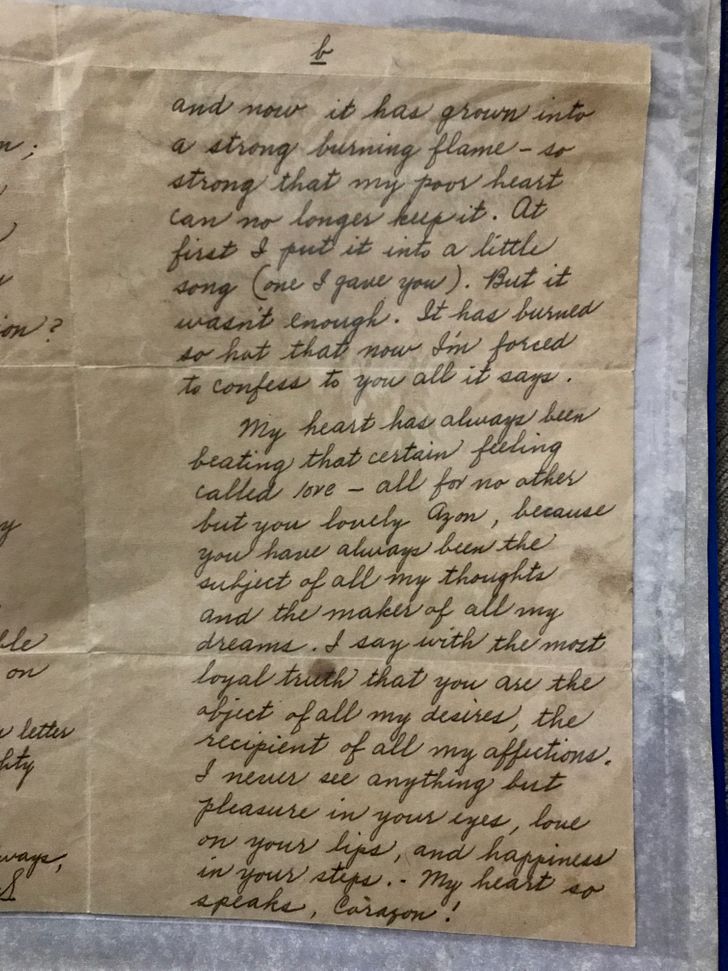 n;
ion?
y
ble
on
letter
hty
ways,
S
b
and now it has grown into
a strong burning flame - so
strong that my poor heart
can no longer keep it. At
first I put it into a little
song (one I gave you). But it
wasn't enough. It has burned
so hot that now I'm forced
to confess to you all it says.
My heart has always been
beating that certain feeling
called love - all for no other
but you lovely Azon, because
you have always been the
subject of all my thoughts
and the maker of all my
dreams. I say with the most
loyal truth that you are the
object of all my desires, the
recipient of all my affections.
I never see anything but
pleasure in your eyes, love
on your lips, and happiness
in your steps. - My heart so
speaks, Corazon!